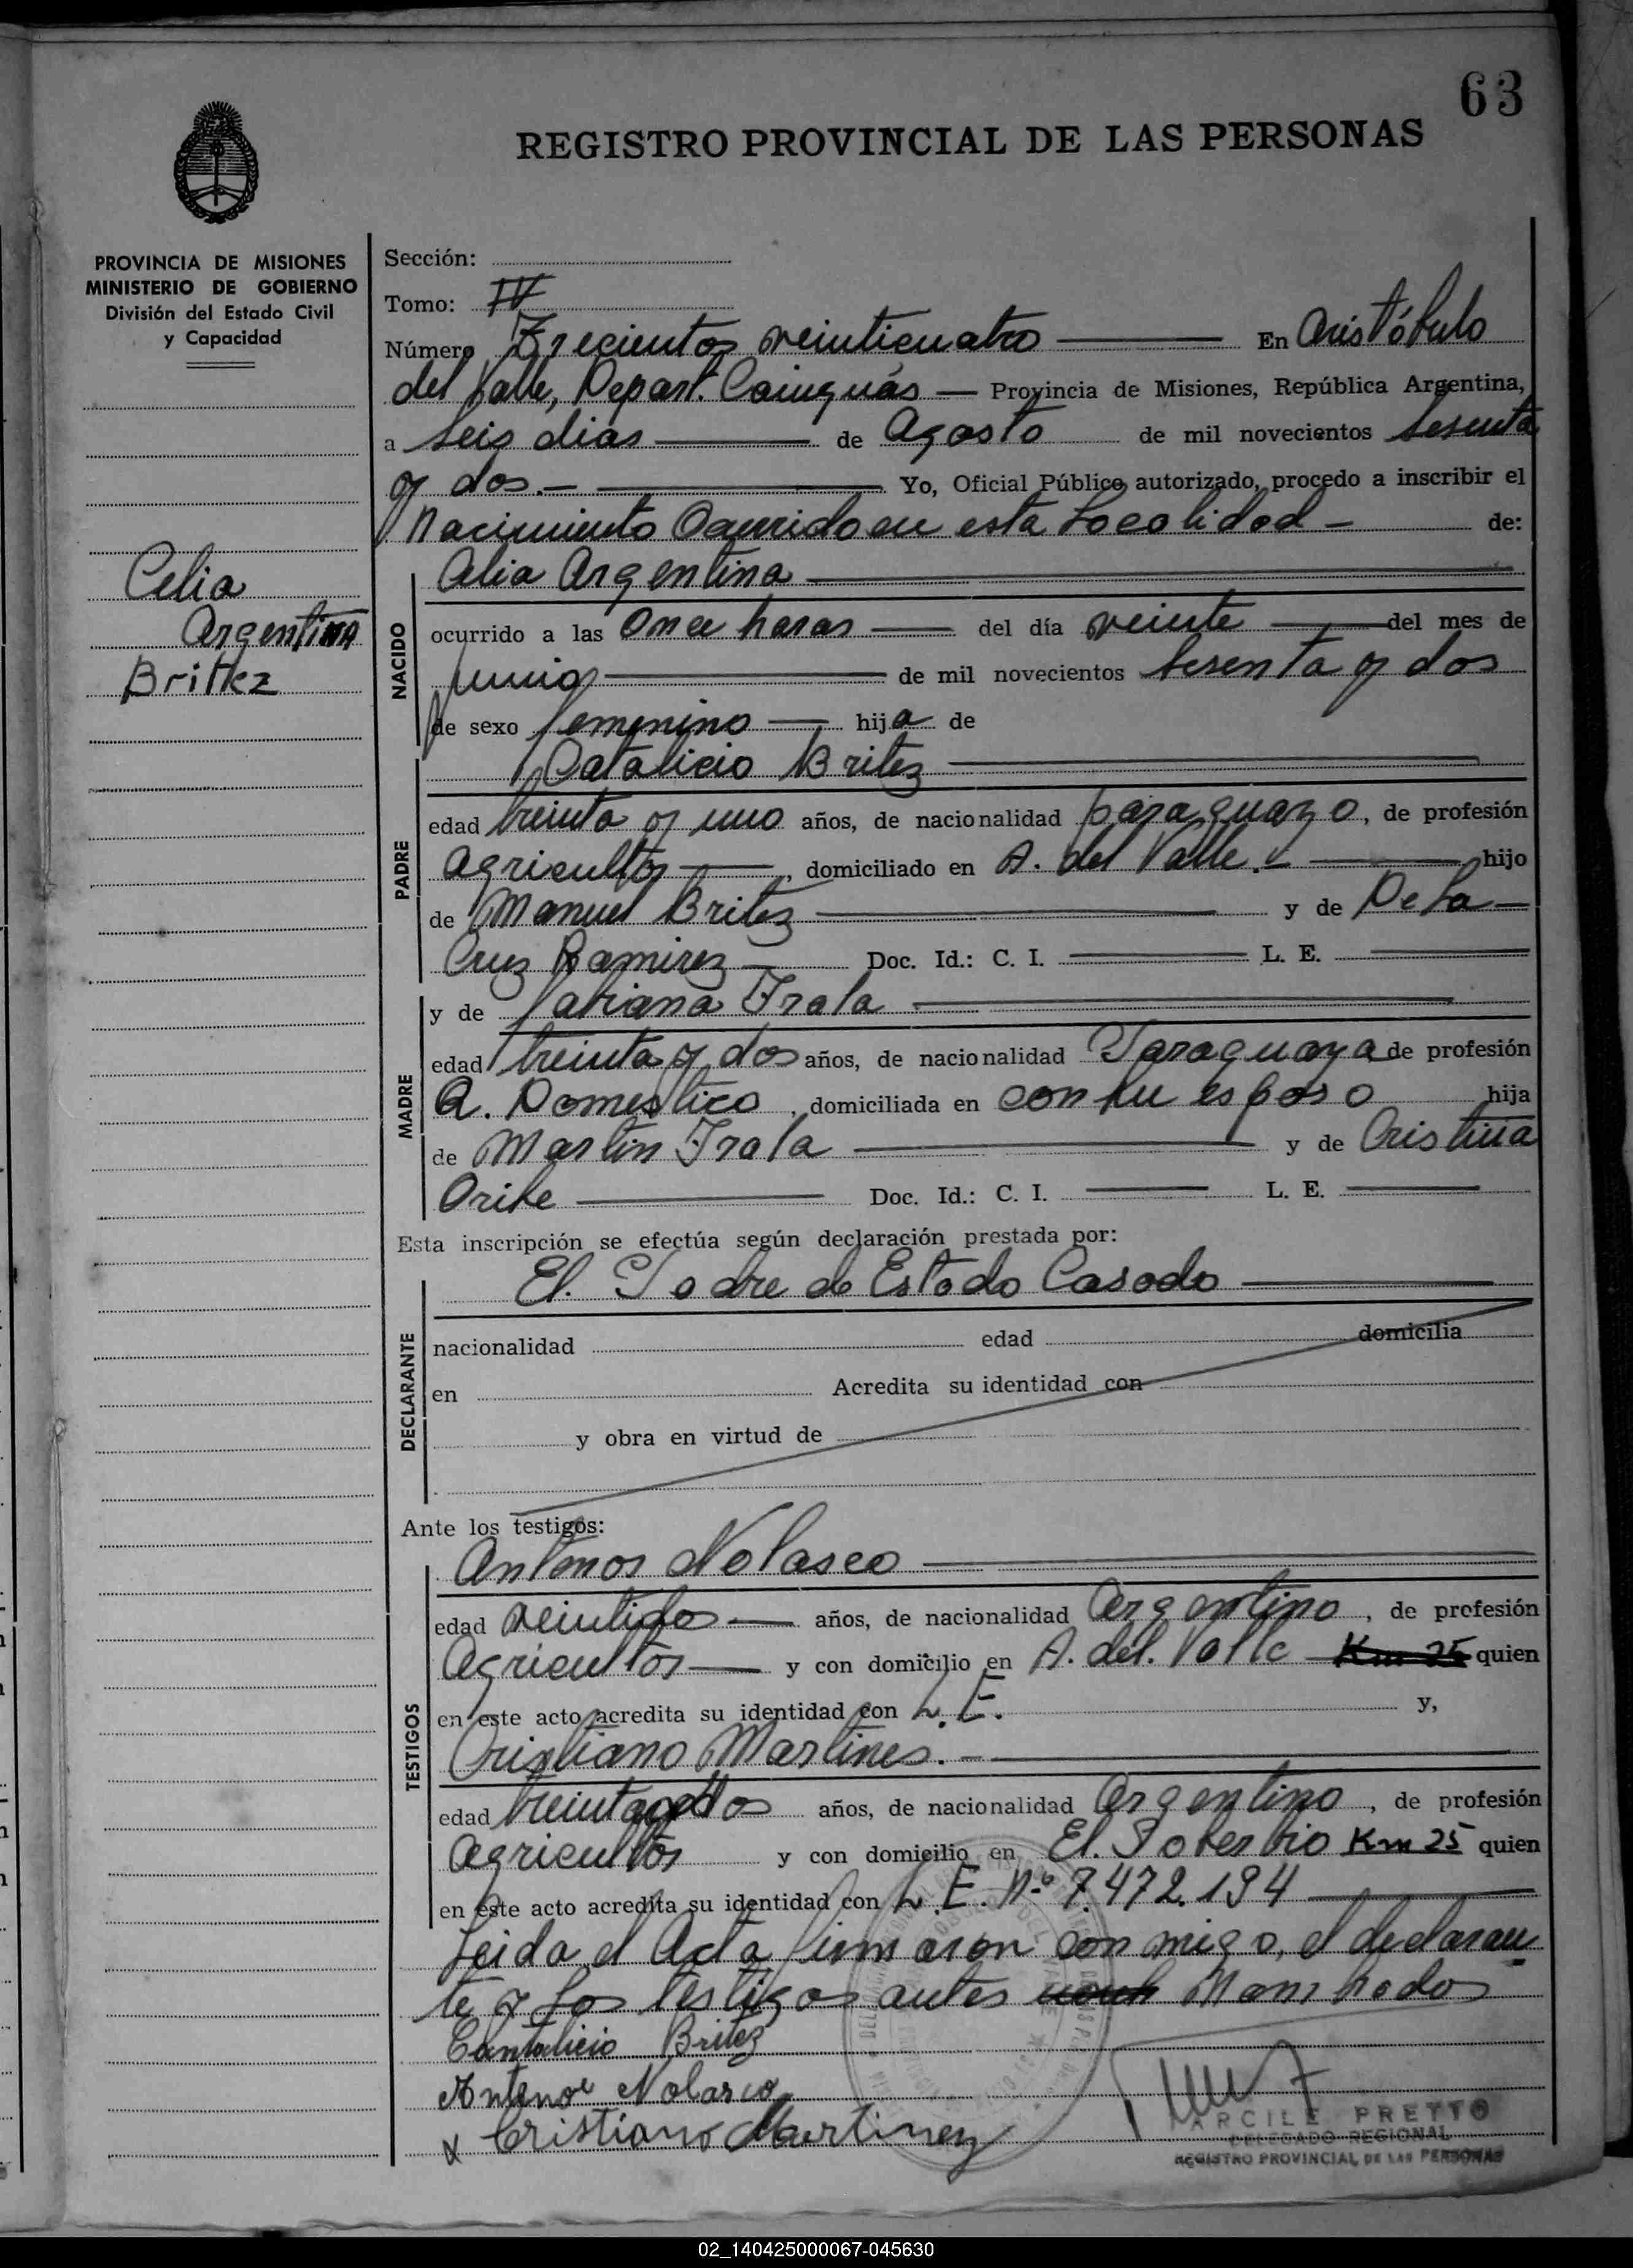 63
REGISTRO PROVINCIAL DE LAS PERSONAS
PROVINCIA DE MISIONES
MINISTERIO DE GOBIERNO
División del Estado Civil
y Capacidad
Celia
Argentina
Brittez
Sección:
Tomo: IV
Número Trecientos veinticuatro En Aristóbulo
del Valle, Depart. Cainguás Provincia de Misiones, República Argentina,
a seis dias de Agosto de mil novecientos sesenta
y dos.- Yo, Oficial Público autorizado, procedo a inscribir el
Nacimiento Ocurrido en esta Localidad - de:
Celia Argentina
NACIDO
ocurrido a las Once horas del día veinte del mes de
Junio de mil novecientos sesenta y dos
de sexo femenino hija de
Catalicio Britez
PADRE
edad treinta y uno años, de nacionalidad paraguayo, de profesión
Agricultor, domiciliado en A. del Valle.- hijo
de Manuel Britez y de De la
Cruz Ramirez Doc. Id.: C. I. L. E.
MADRE
y de Fabiana Irala
edad treinta y dos años, de nacionalidad Paraguaya de profesión
Q. Domestico, domiciliada en con su esposo hija
de Martin Irala y de Cristina
Orike Doc. Id.: C. I. L. E.
Esta inscripción se efectúa según declaración prestada por:
El. Padre de Estado Casado
DECLARANTE
nacionalidad edad domicilia
en Acredita su identidad con
y obra en virtud de
Ante los testigos:
TESTIGOS
Antenor Nolasco
edad veintidos años, de nacionalidad Argentino, de profesión
Agricultor y con domicilio en A. del. Valle Km 25 quien
en este acto acredita su identidad con L. E. y,
Cristiano Martines.-
edad treinta años, de nacionalidad Argentino, de profesión
Agricultor y con domicilio en El. Soberbio Km 25 quien
en este acto acredita su identidad con L. E. Nº 7.472.194
Leida el Acta firmaron con migo, el declaran
te y los testigos antes Nombrados
Cantalicio Britez
Antenor Nolasco
x Cristiano Martinez
ARCILE PRETTO
DELEGADO REGIONAL
REGISTRO PROVINCIAL DE LAS PERSONAS
02_140425000067-045630